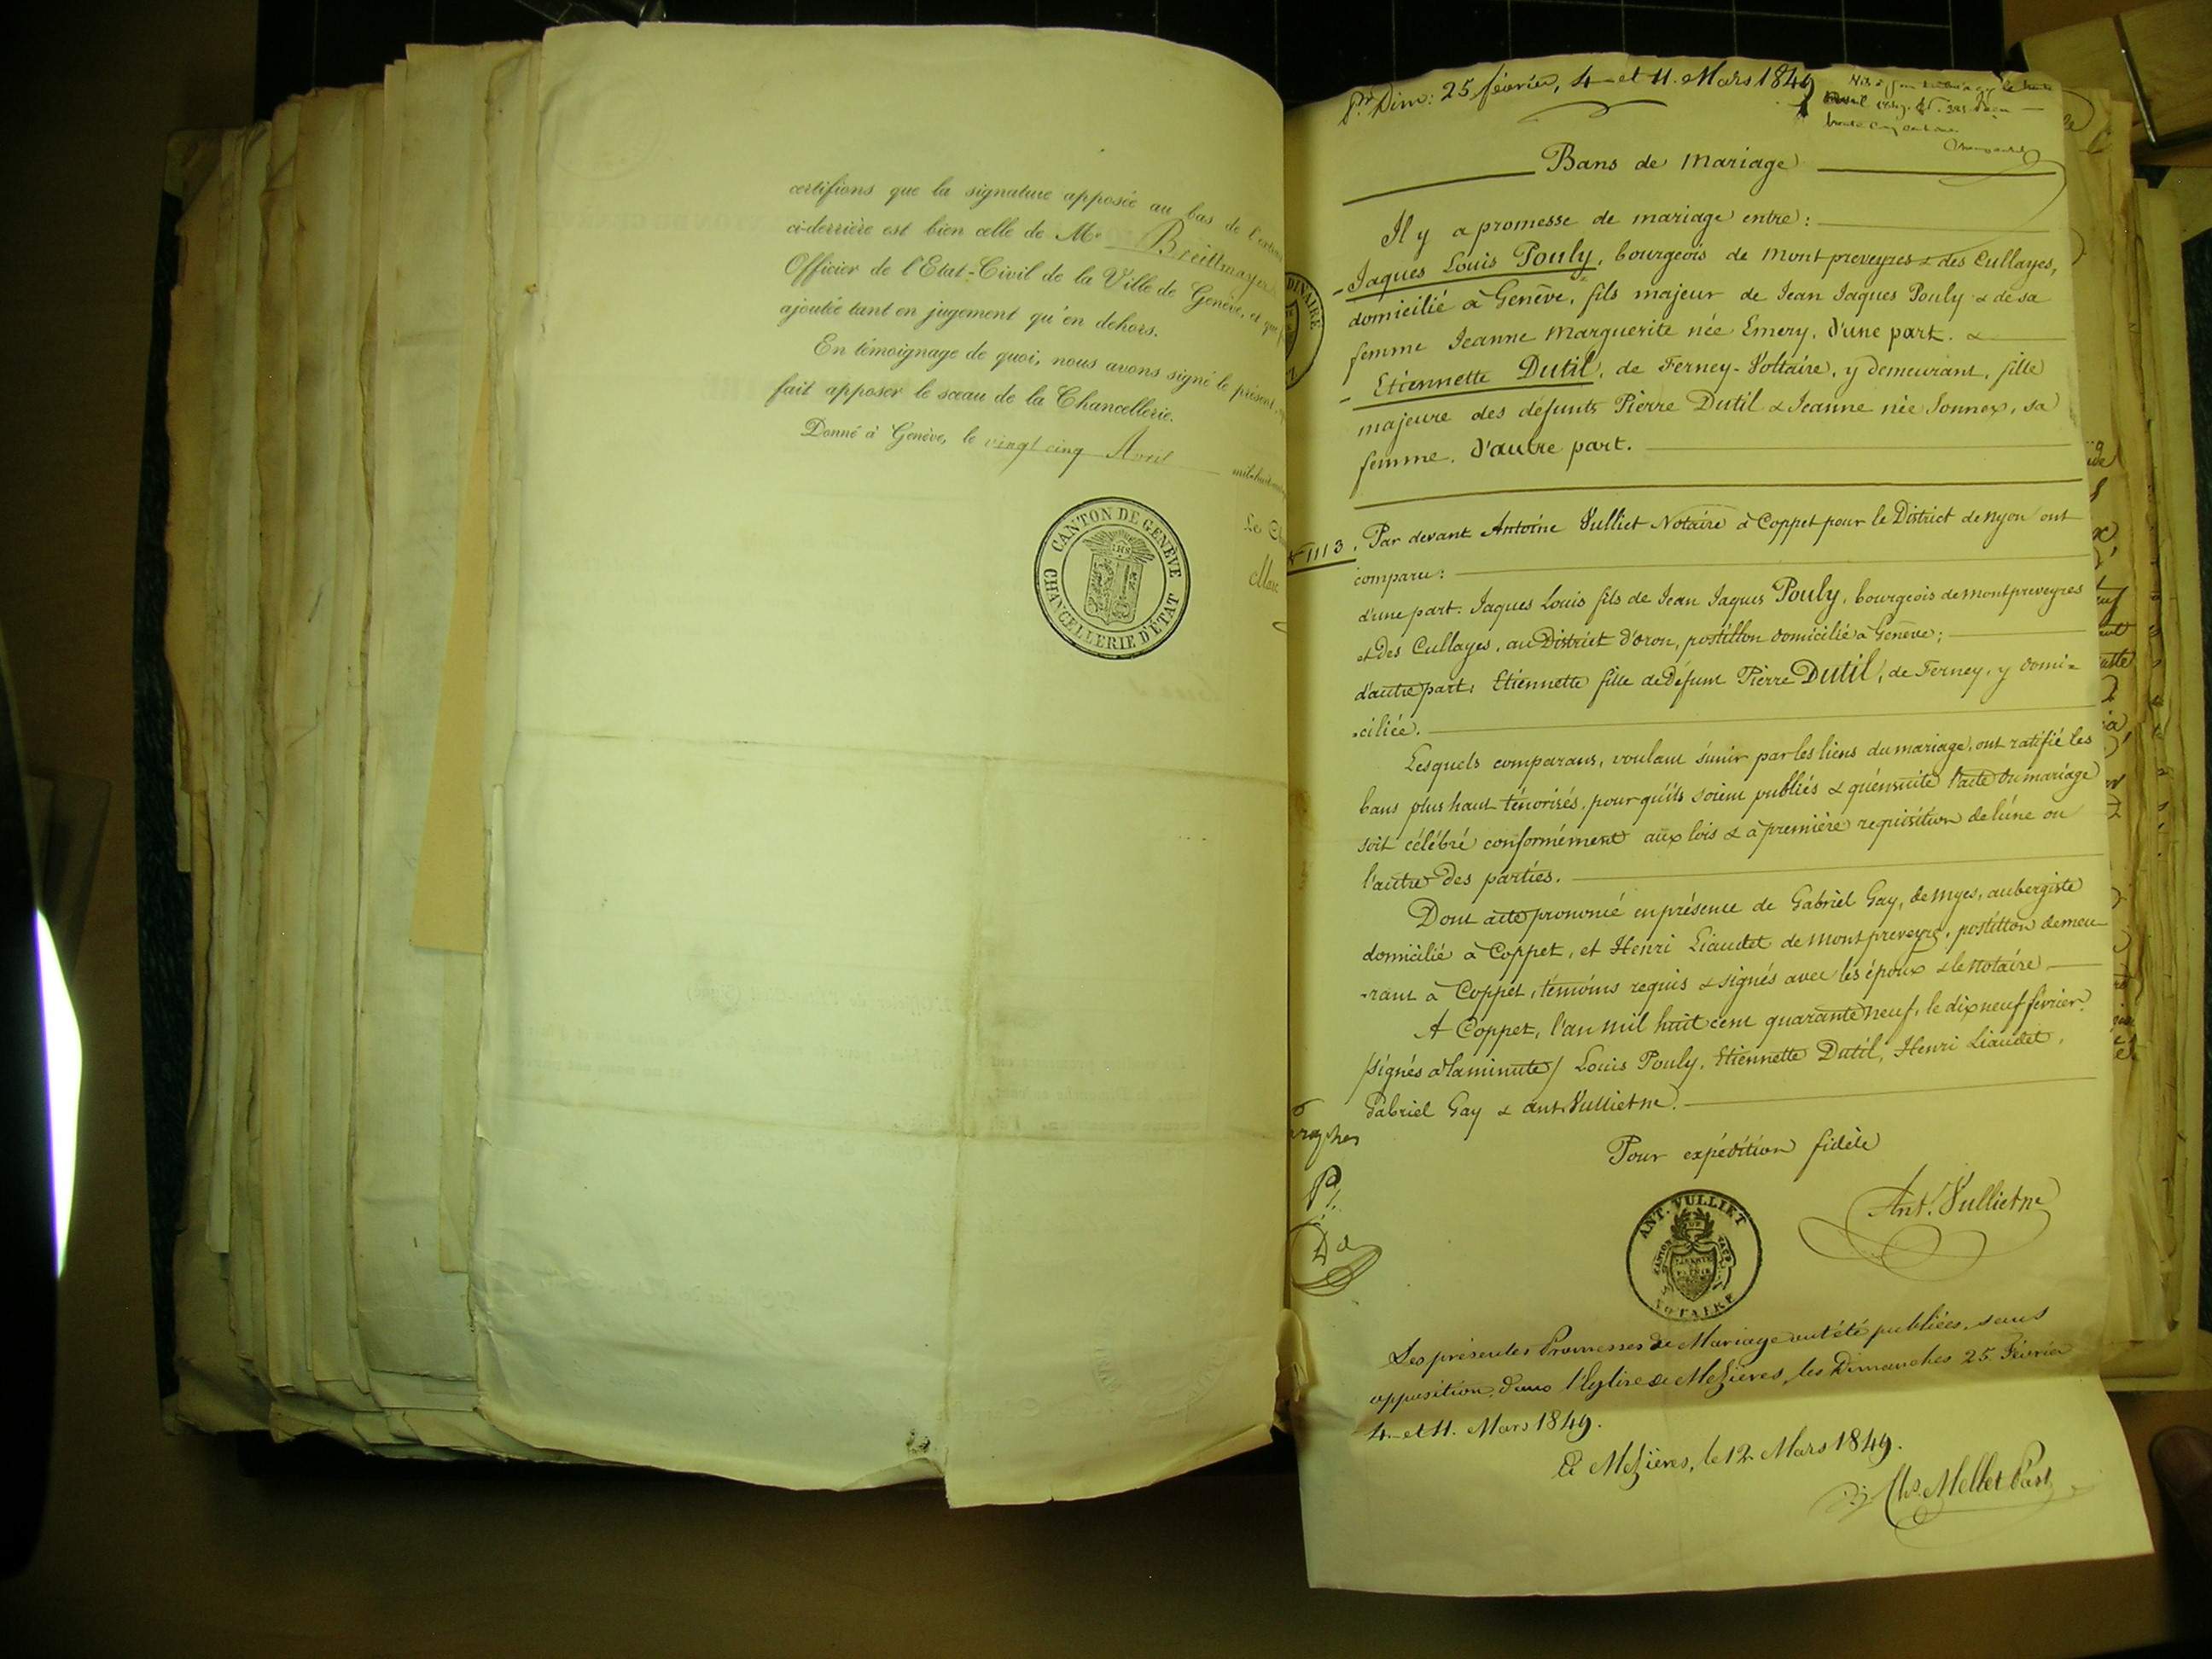 certifions que la signature apposée au bas de l'
ci-derrière est bien celle de Mr Breittmayer
Officier de l'Etat-Civil de la Ville de Genève, et que
ajoutée tant en jugement qu'en dehors.
En témoignage de quoi, nous avons signé le présent
fait apposer le sceau de la Chancellerie.
Donné à Genève, le vingt cinq Avril
CANTON DE GENÈVE
CHANCELLERIE D'ÉTAT
pr Dim: 25 février, 4 et 11. Mars 1849
Bans de mariage
Il y a promesse de mariage entre:
Jaques Louis Pouly, bourgeois de Montpreveyres & des Cullayes,
domicilié à Genève, fils majeur de Jean Jaques Pouly & de sa
femme Jeanne Marguerite née Emery, d'une part. &
Etiennette Dutil, de Ferney-Voltaire, y demeurant, fille
majeure des défunts Pierre Dutil & Jeanne née Sonnex, sa
femme, d'autre part.
No 1113. Par devant Antoine Vulliet Notaire à Coppet pour le District de Nyon ont
comparu:
d'une part. Jaques Louis fils de Jean Jaques Pouly, bourgeois de Montpreveyres
et des Cullayes, au District d'oron, postillon domicilié à Genève;
d'autre part, Etiennette fille de défunt Pierre Dutil, de Ferney, y domi=
=ciliée.
Lesquels comparans, voulant s'unir par les liens du mariage, ont ratifié les
bans plus haut ténorisés, pour qu'ils soient publiés & qu'ensuite l'acte du mariage
soit célébré conformément aux lois & à première requisition de l'une ou
l'autre des parties.
Dont acte prononcé en présence de Gabriel Gay, de Myes, aubergiste
domicilié à Coppet, et Henri Liaudet de Montpreveyre, postillon demeu
-rant à Coppet, témoins requis & signés avec les époux & le notaire
A Coppet, l'an mil huit cent quarante neuf, le dix neuf février.
/signés à la minute/ Louis Pouly, Etiennette Dutil, Henri Liaudet,
Gabriel Gay & ant. Vulliet ne.
Pour expédition fidèle
Ant. Vulliet ne
ANT. VULLIET
CANTON VAUD
LIBERTÉ ET PATRIE
NOTAIRE
Les présentes Promesses de Mariage ont été publiées, sans
opposition, dans l'Eglise de Mézières, les Dimanches 25. Février
4. et 11. Mars 1849.
A Mézières, le 12 Mars 1849.
Chs Mellet Past